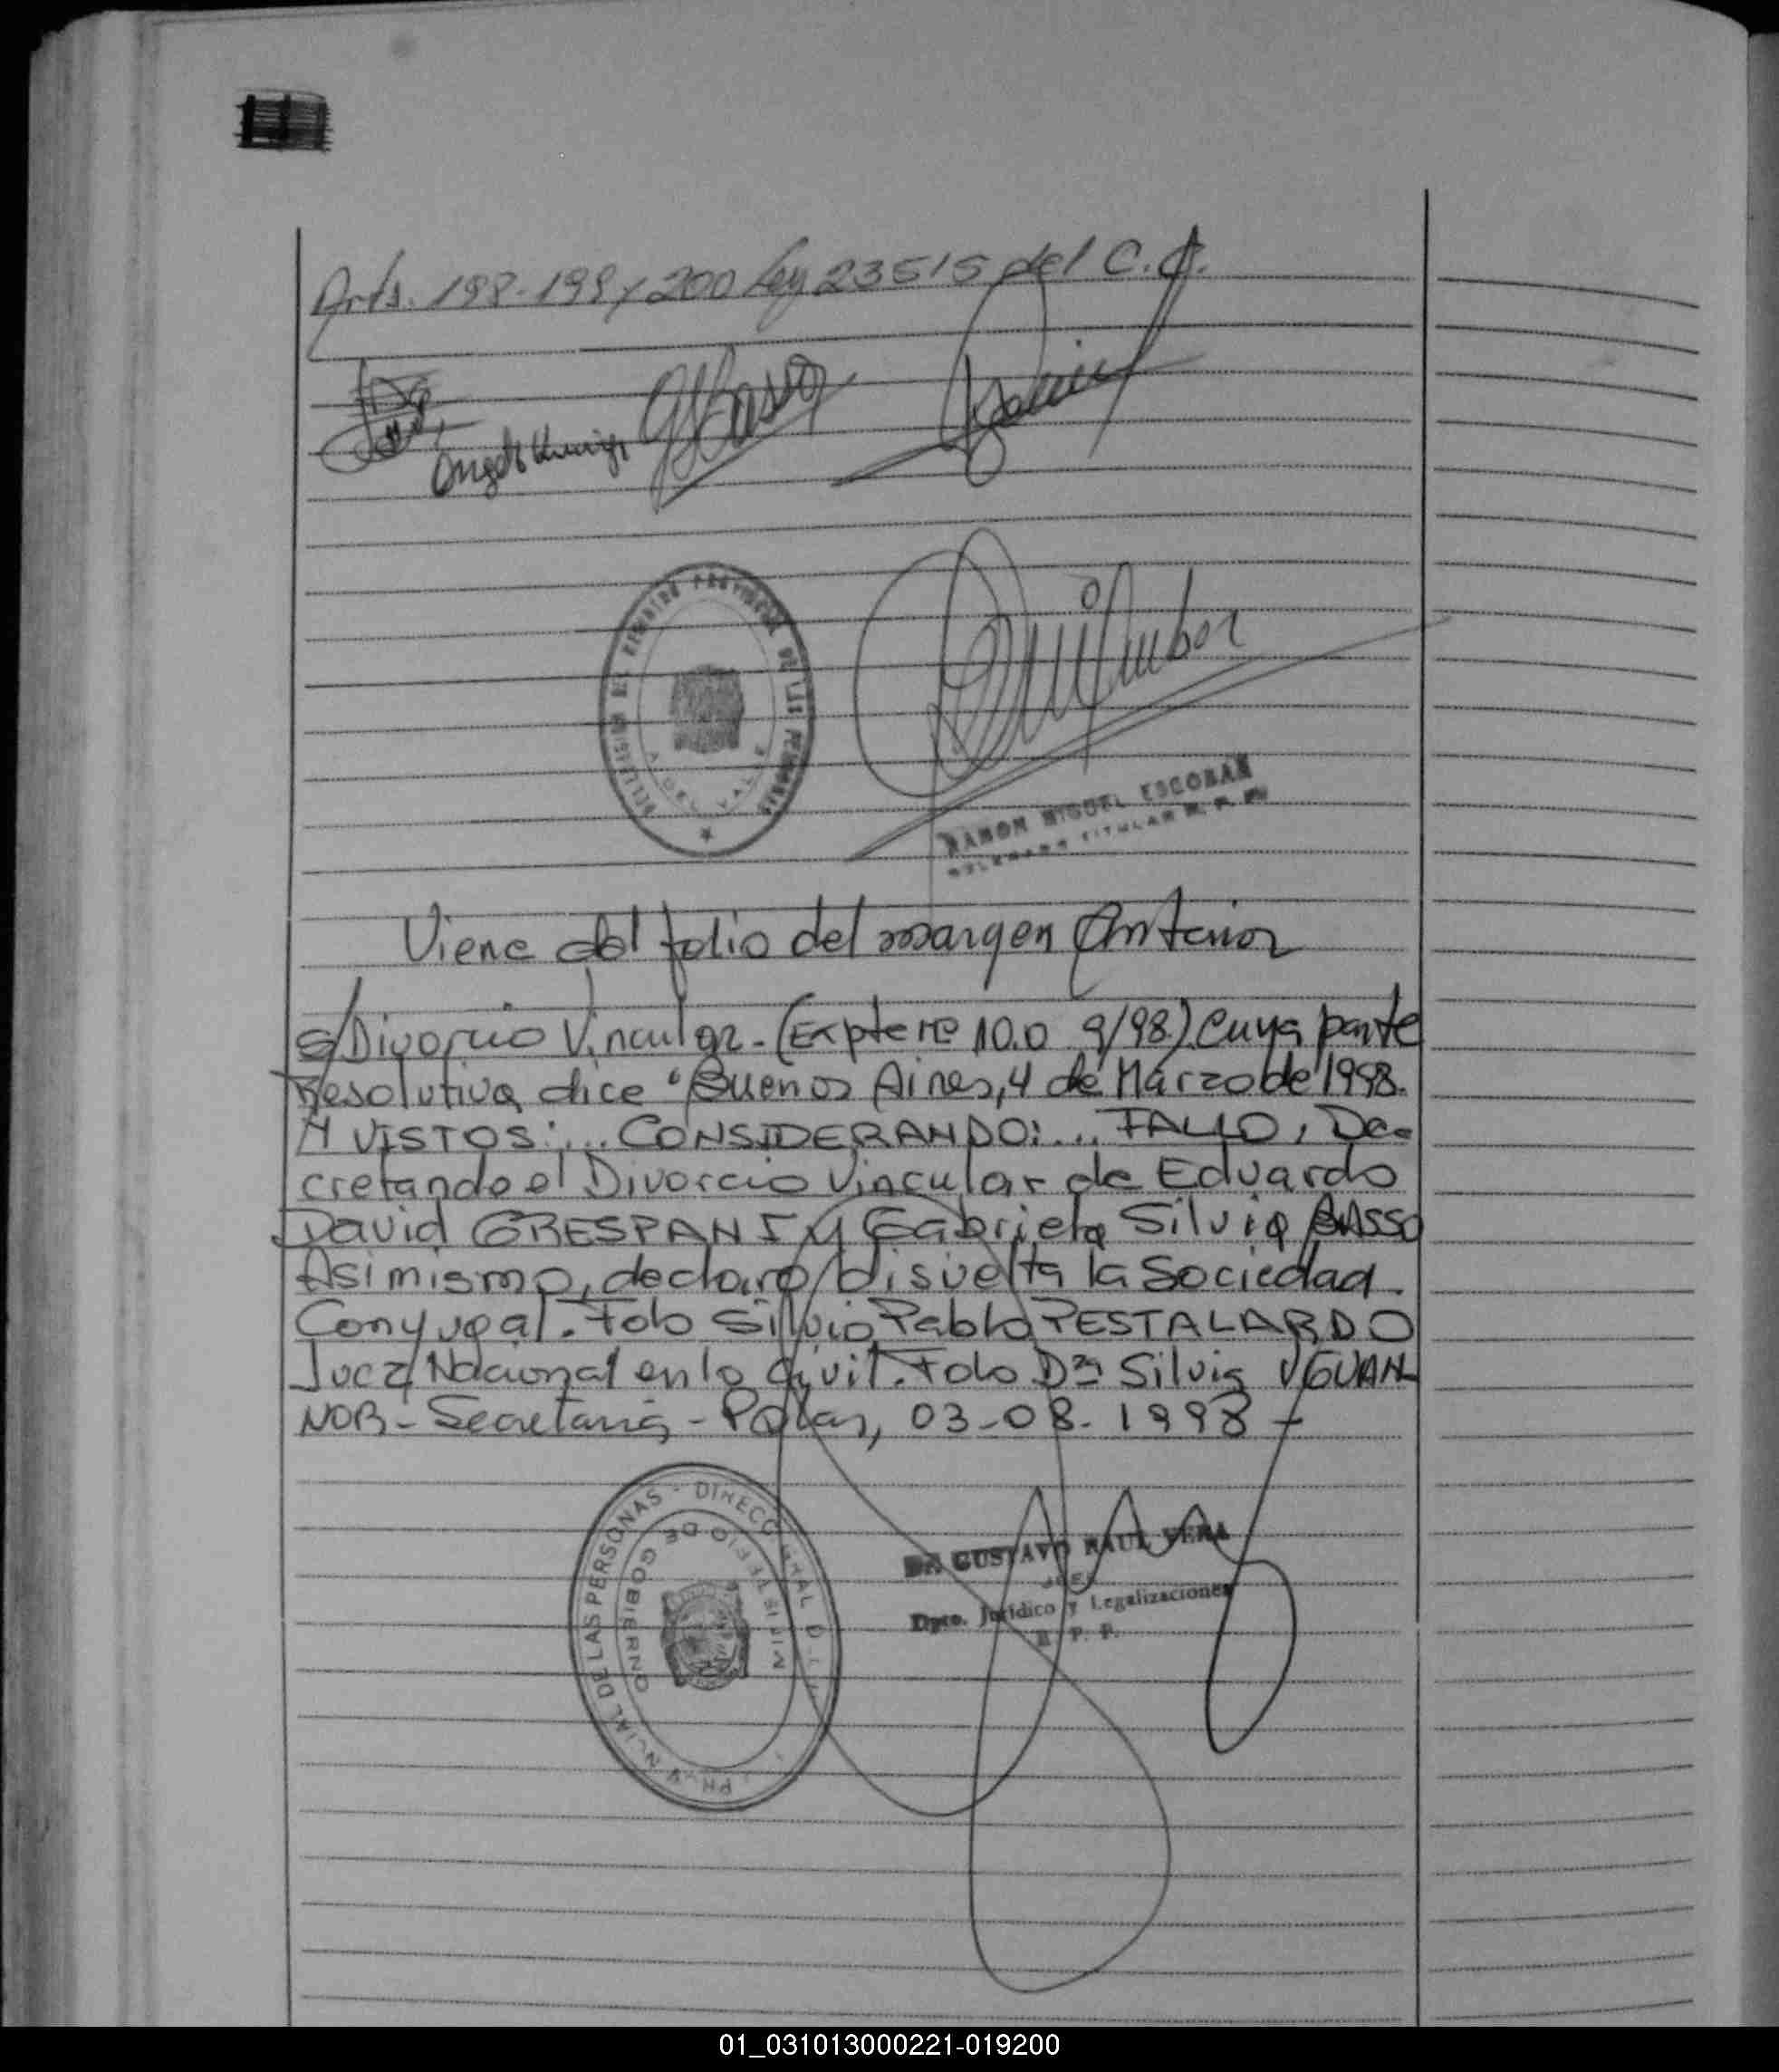 Arts. 198-199 y 200 Ley 23515 del C.C.
GSBasso
DELEGACION DEL REGISTRO PROVINCIAL DE LAS PERSONAS
RAMON MIGUEL ESCOBAR
DELEGADO TITULAR R. P. P.
Viene del folio del margen Anterior
s/Divorcio Vincular - (Expte Nº 10.0 9/98) cuya parte
Resolutiva dice "Buenos Aires, 4 de Marzo de 1998.
Y VISTOS:... CONSIDERANDO:... FALLO, De-
cretando el Divorcio Vincular de Eduardo
David CRESPANI y Gabriela Silvia BASSO
Asimismo, declaro disuelta la Sociedad
Conyugal. Fdo Silvio Pablo PESTALARDO
Juez Nacional en lo Civil. Fdo Dra Silvia
NOR - Secretaria - 03-08-1998 -
PROVINCIAL DE LAS PERSONAS - DIRECC
MINISTERIO DE GOBIERNO
Dr. GUSTAVO RAUL VERA
JEFE
Dpto. Jurídico y Legalizaciones
R. P. P.
01_031013000221-019200